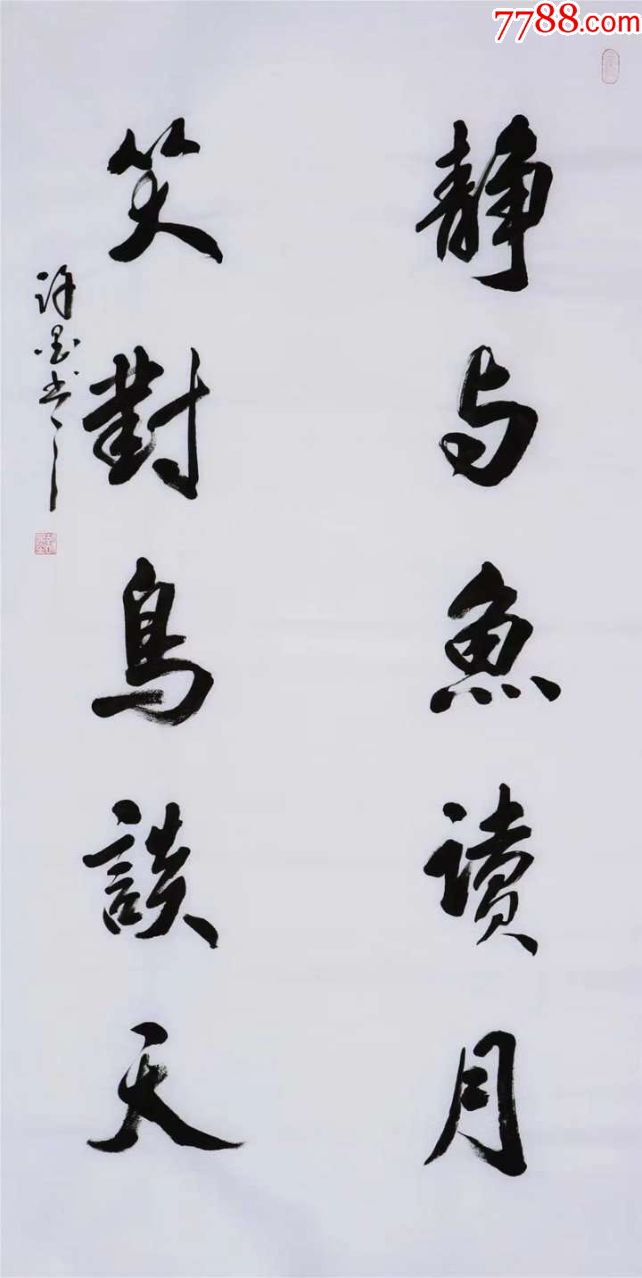 7788.com
静与鱼读月
笑對鳥談天